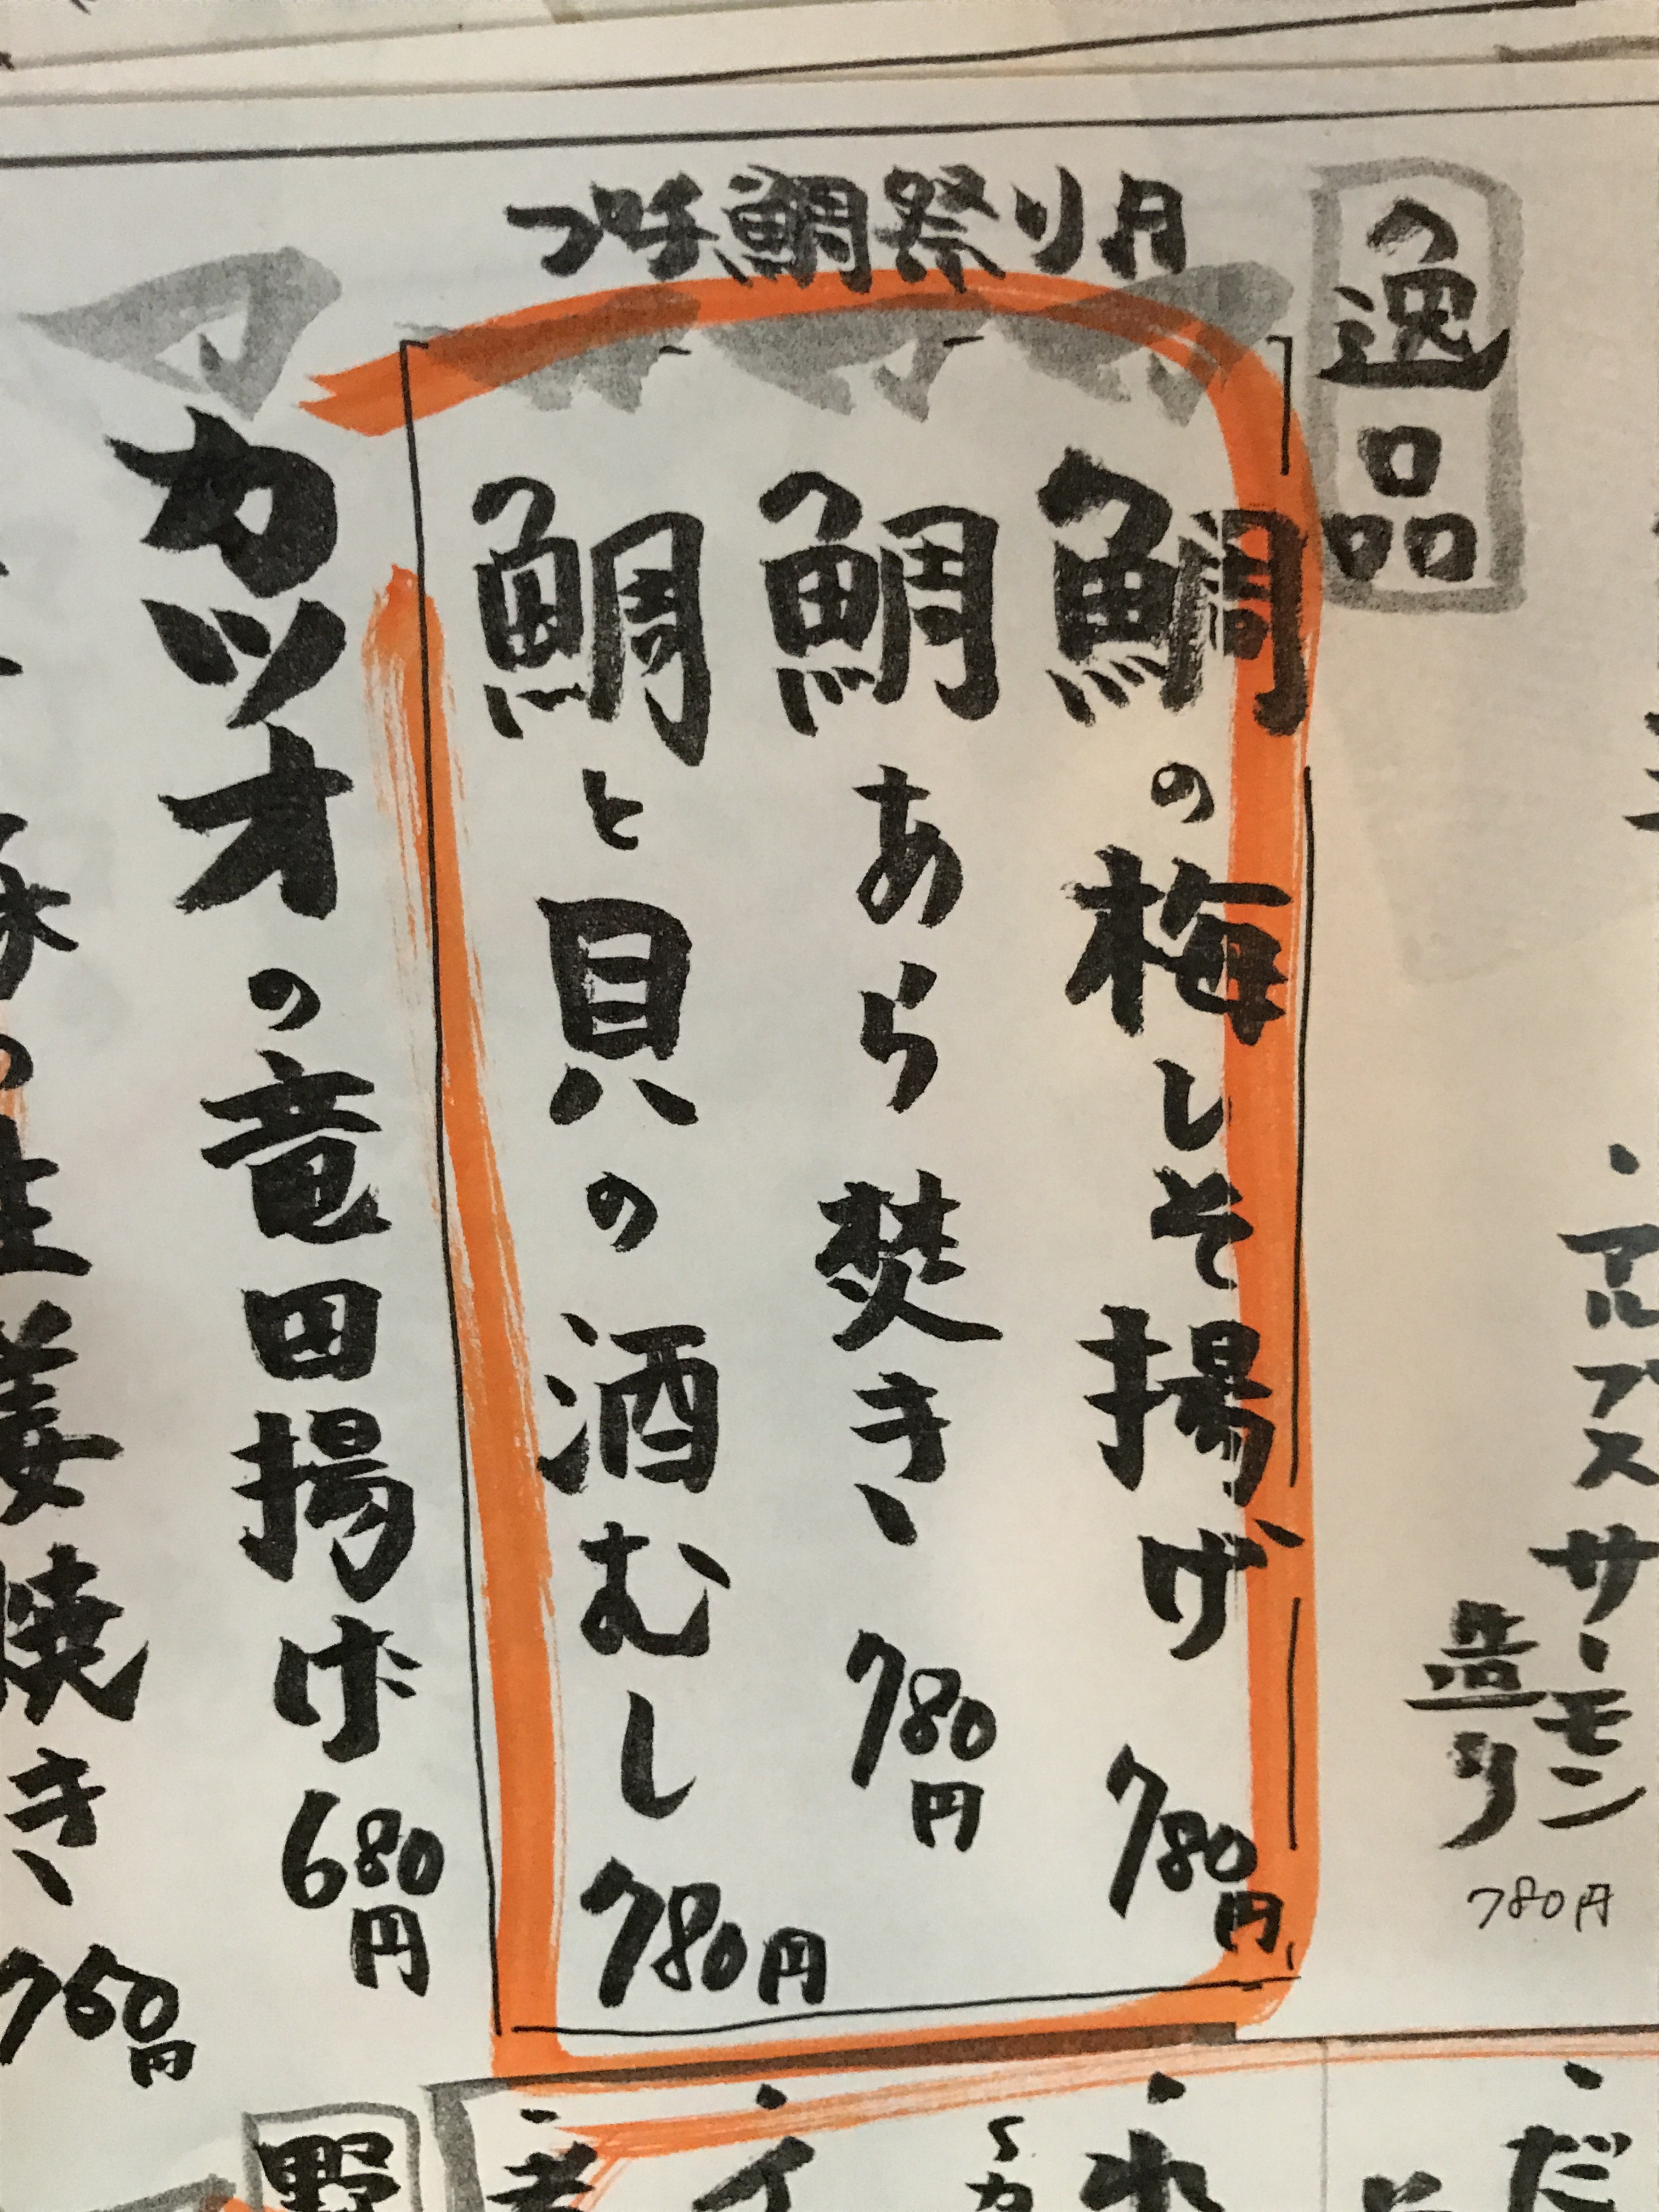 逸品
鯛祭り
鯛の梅しそ揚げ 780円
鯛あら焚き 780円
鯛と貝の酒むし 780円
カツオの竜田揚げ 680円
生姜焼き 750円
アルプスサーモン
造り
780円
野